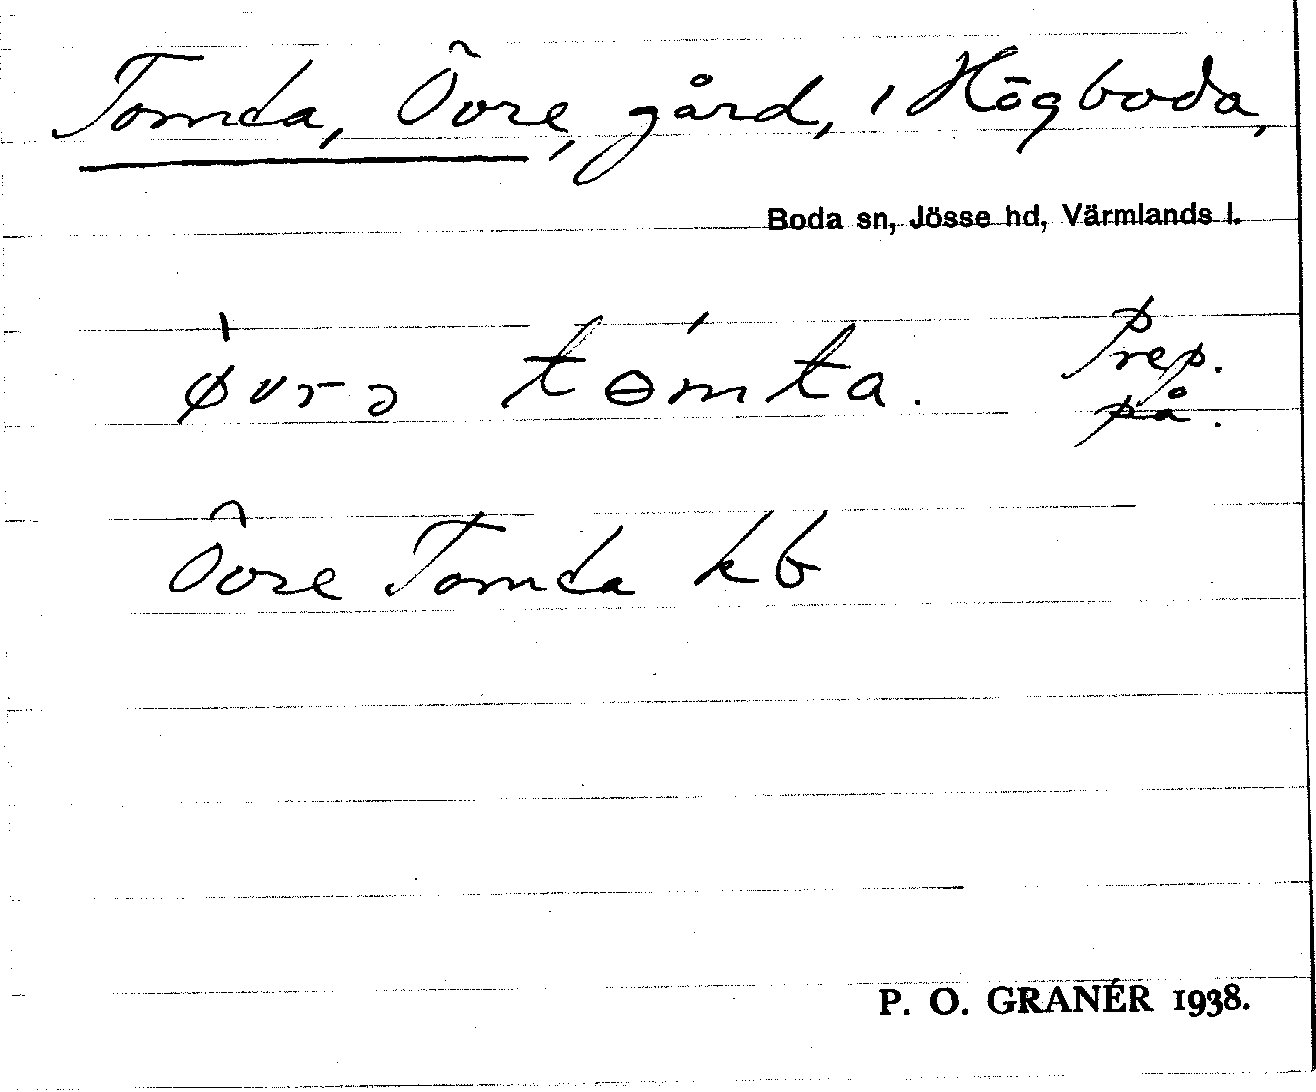 Tomta, Övre, gård, i Högboda,
Boda sn, Jösse hd, Värmlands l.
ø̀vrə tɵ́mta. Prep. på.
Övre Tomta kb
P. O. GRANÉR 1938.